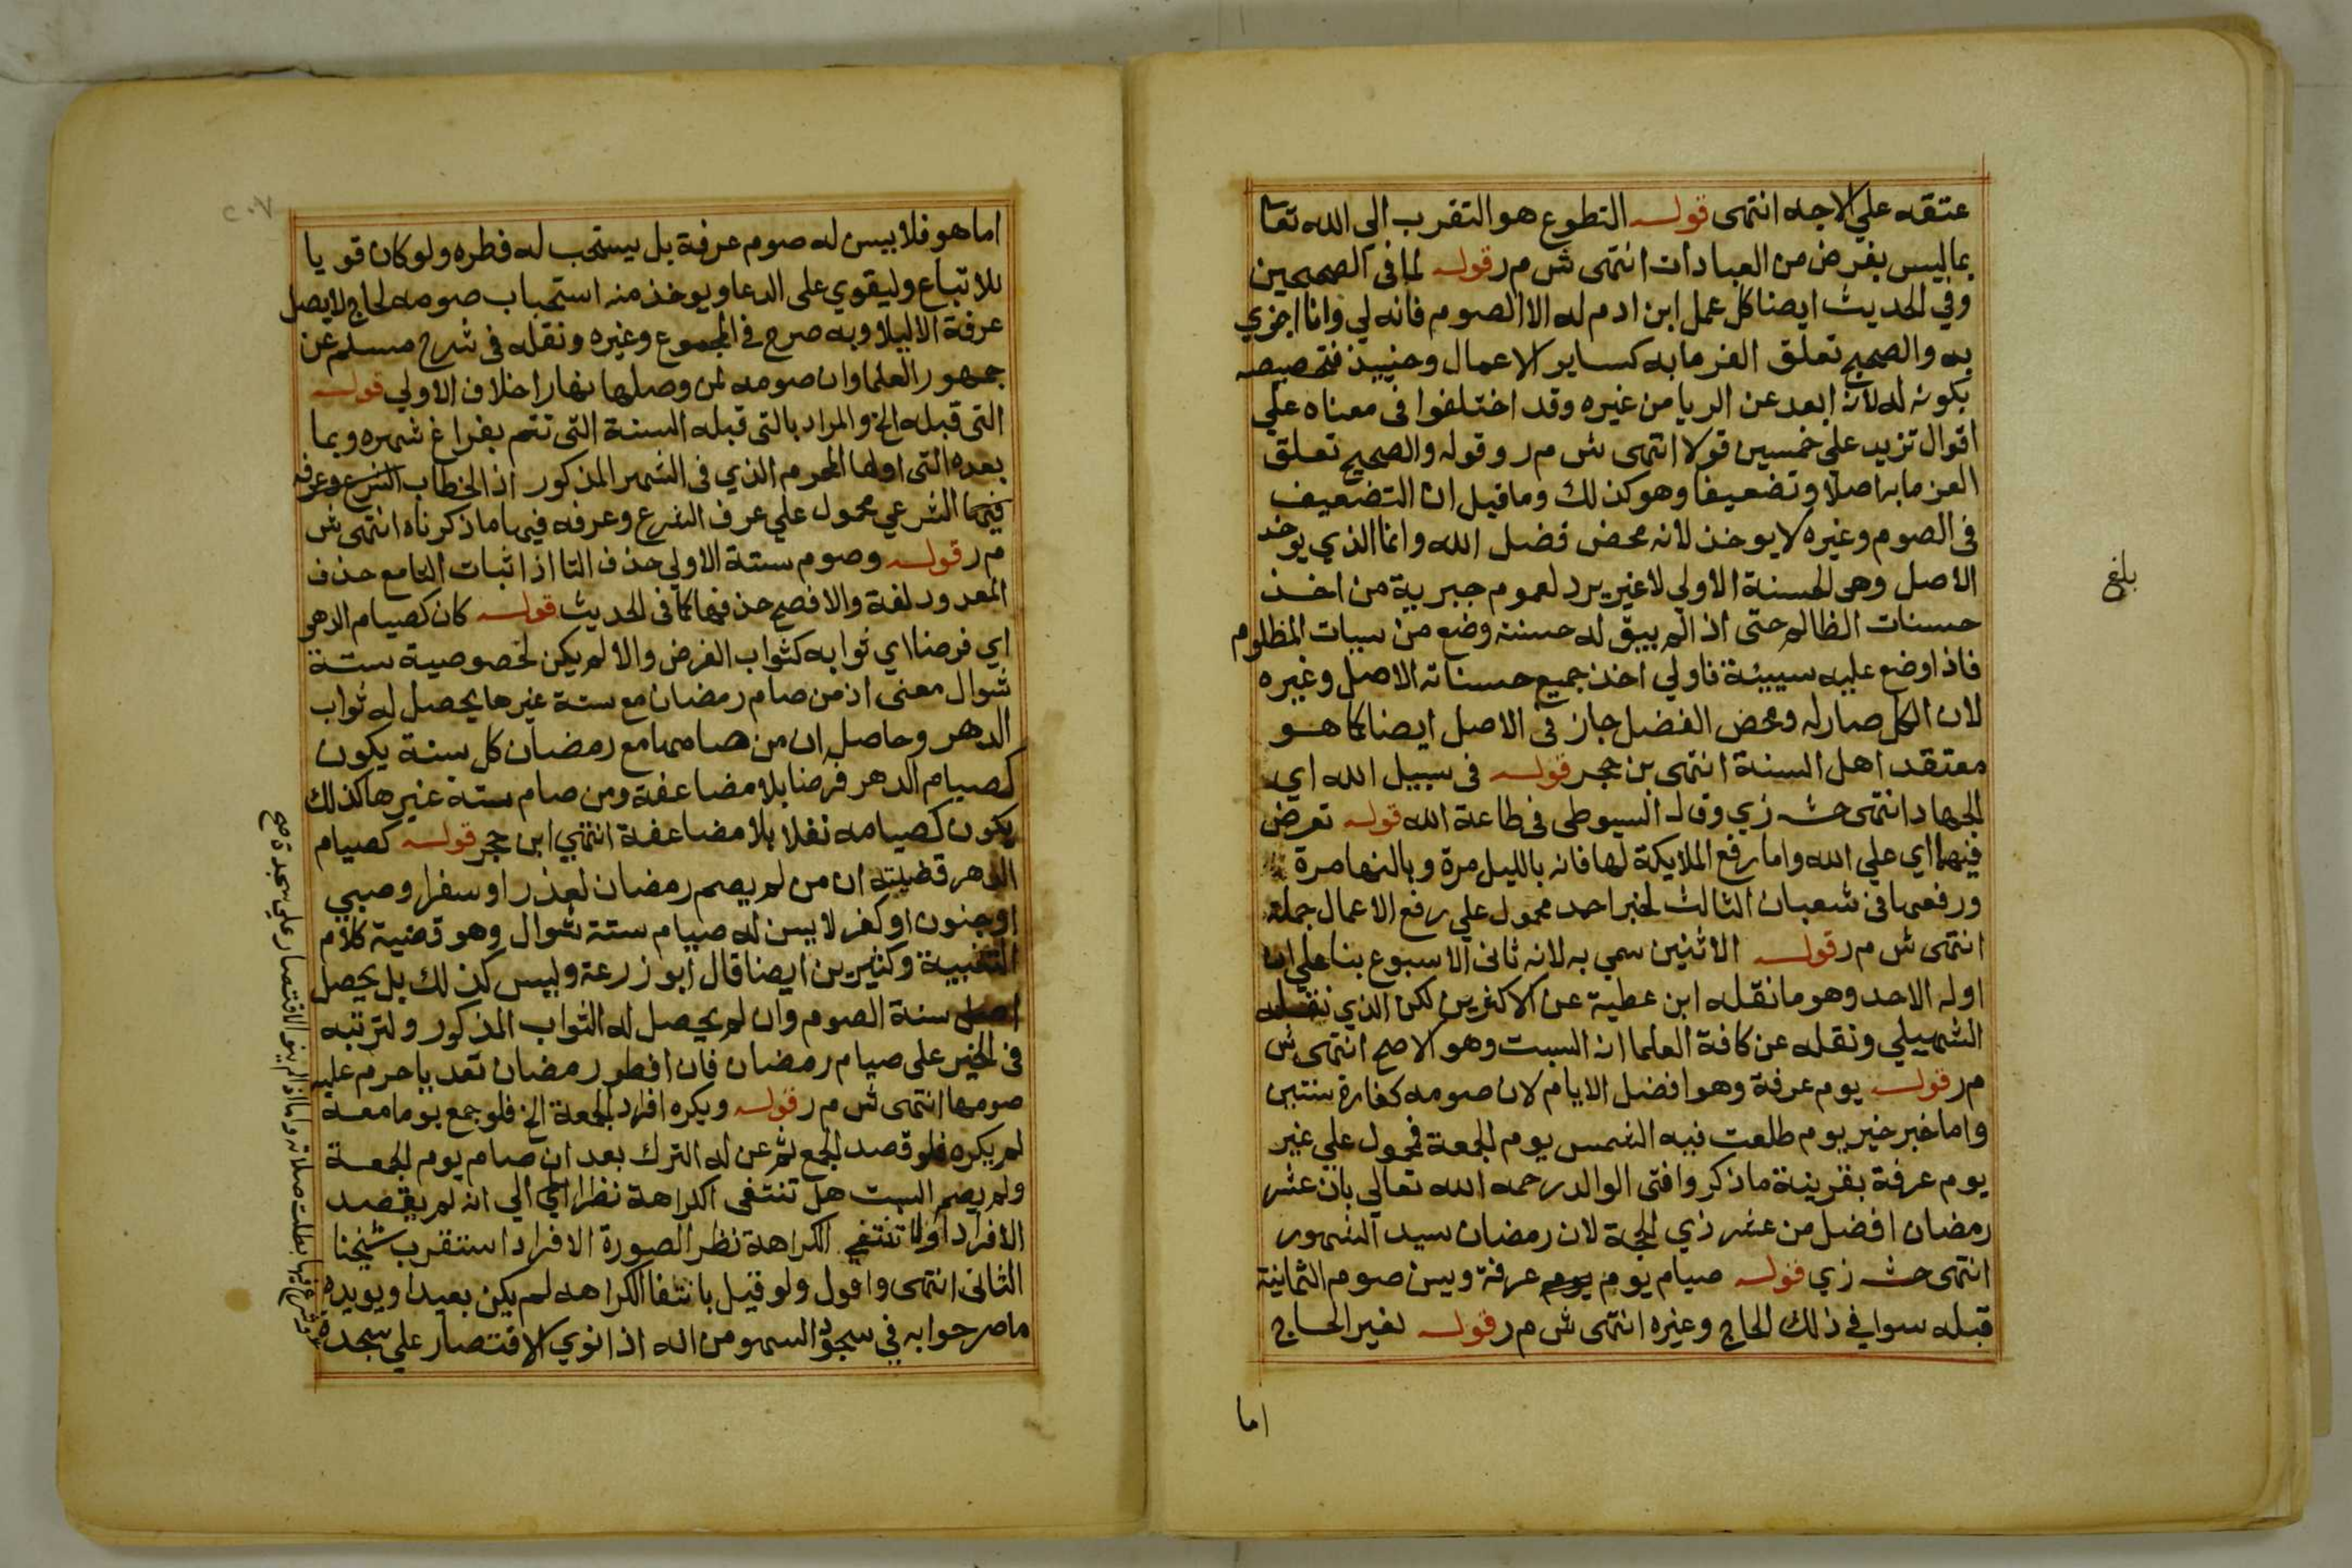 عتقه علي الاجه انتهى قوله التطوع هو التقرب الي الله تعا
بما ليس بفرض من العبادات انتهى ش م ر قوله لما في الصحيحين
وفي الحديث ايضا كل عمل ابن ادم له الا الصوم فانه لي وانا اجزي
به والصحيح تعلق الغرما به كساير الاعمال وحينيذ فتخصيصه
بكونه له لانه ابعد عن الريا من غيره وقد اختلفوا في معناه علي
اقوال تزيد علي خمسين قولا انتهى ش م ر وقوله والصحيح تعلق
الغرما به اصلا وتضعيفا وهو كذلك وما قيل ان التضعيف
في الصوم وغيره لا يوخذ لانه محض فضل الله وانما الذي يوخد
الاصل وهي الحسنة الاولي لا غير يرد لعموم جبرية من اخذ
حسنات الظالم حتى اذا لم يبق له حسنته وضع من سيات المظلوم
فاذا وضع عليه سيية فاولي اخذ جميع حسناته الاصل وغيره
لان الكل صار له ومحض الفضل جاز في الاصل ايضا كما هو
معتقد اهل السنة انتهى بن حجر قوله في سبيل الله اي
الجهاد انتهى حشـ زي وقال السيوطي في طاعة الله قوله تعرض
فيهما اي علي الله واما رفع الملايكة لها فانه بالليل مرة وبالنهار مرة
ورفعها في شعبان الثالث لخبر احمد محمول علي رفع الاعمال جملة
انتهى ش م ر قوله الاثنين سمي به لانه ثاني الاسبوع بنا علي ان
اوله الاحد وهو ما نقله ابن عطية عن الاكثرين لكن الذي نقله
الشهيلي ونقله عن كافة العلما انه السبت وهو الاصح انتهى ش
م ر قوله يوم عرفة وهو افضل الايام لان صومه كفارة سنتين
واما خبر خير يوم طلعت فيه الشمس يوم الجمعة فمحمول علي غير
يوم عرفة بقرينة ما ذكر وافتى الوالد رحمه الله تعالي بان عشر
رمضان افضل من عشر ذي الحجة لان رمضان سيد الشهور
انتهى حشـ زي قوله صيام يوم يوم عرفة ويسن صوم الثمانية
قبله سوا في ذلك الحاج وغيره انتهى ش م ر قوله لغير الحاج
اما
بلغ
اما هو فلا يسن له صوم عرفة بل يستحب له فطره ولو كان قويا
للاتباع وليقوي على الدعا ويوخذ منه استحباب صومه لحاج لا يصل
عرفة الا ليلا وبه صرح في المجموع وغيره ونقله في شرح مسلم عن
جمهور العلما وان صومه لمن وصلها نهارا خلاف الاولي قوله
التي قبله الخ والمراد بالتي قبله السنة التي تتم بفراغ شهره وبما
بعده التي اولها المحرم الذي في الشهر المذكور اذ الخطاب الشرع وعرفه
فيهما الشرعي محمول علي عرف الشرع وعرفه فيها ما ذكرناه انتهى ش
م ر قوله وصوم ستة الاولي حذف التا اذ اثبات التا مع حذف
المعدود لغة والافصح حذفها كما في الحديث قوله كان كصيام الدهر
اي فرضا اي ثوابه كثواب الفرض والا لم يكن لخصوصية ستة
شوال معنى اذ من صام رمضان مع ستة غيرها يحصل له ثواب
الدهر وحاصله ان من صامها مع رمضان كل سنة يكون
كصيام الدهر فرضا بلا مضاعفة ومن صام ستة غيرها كذلك
يكون كصيامه نفلا بلا مضاعفة انتهي ابن حجر قوله كصيام
الدهر قضيته ان من لم يصم رمضان لعذر او سفر او صبي
او جنون او كفر لا يسن له صيام ستة شوال وهو قضية كلام
التنبيه وكثيرين ايضا قال ابو زرعة وليس كذلك بل يحصل
اصل سنة الصوم وان لم يحصل له الثواب المذكور ولترتبه
في الخبر على صيام رمضان فان افطر رمضان تعديا حرم عليه
صومها انتهى ش م ر قوله ويكره افراد الجمعة الخ فلو جمع يوما معه
لم يكره فلو قصد الجمع ثم عن له الترك بعد ان صام يوم الجمعة
ولم يصم السبت هل تنتفى الكراهة نظرا الي انه لم يقصد
الافراد او لا تنتفي الكراهة نظر الصورة الافراد استقرب شيخنا
الثاني انتهى واقول ولو قيل بانتفا الكراهه لم يكن بعيدا ويويده
ما صرحوا به في سجود السهو من انه اذا نوي الاقتصار علي سجدة